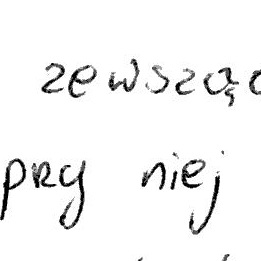 zewsząd
pRzy niej